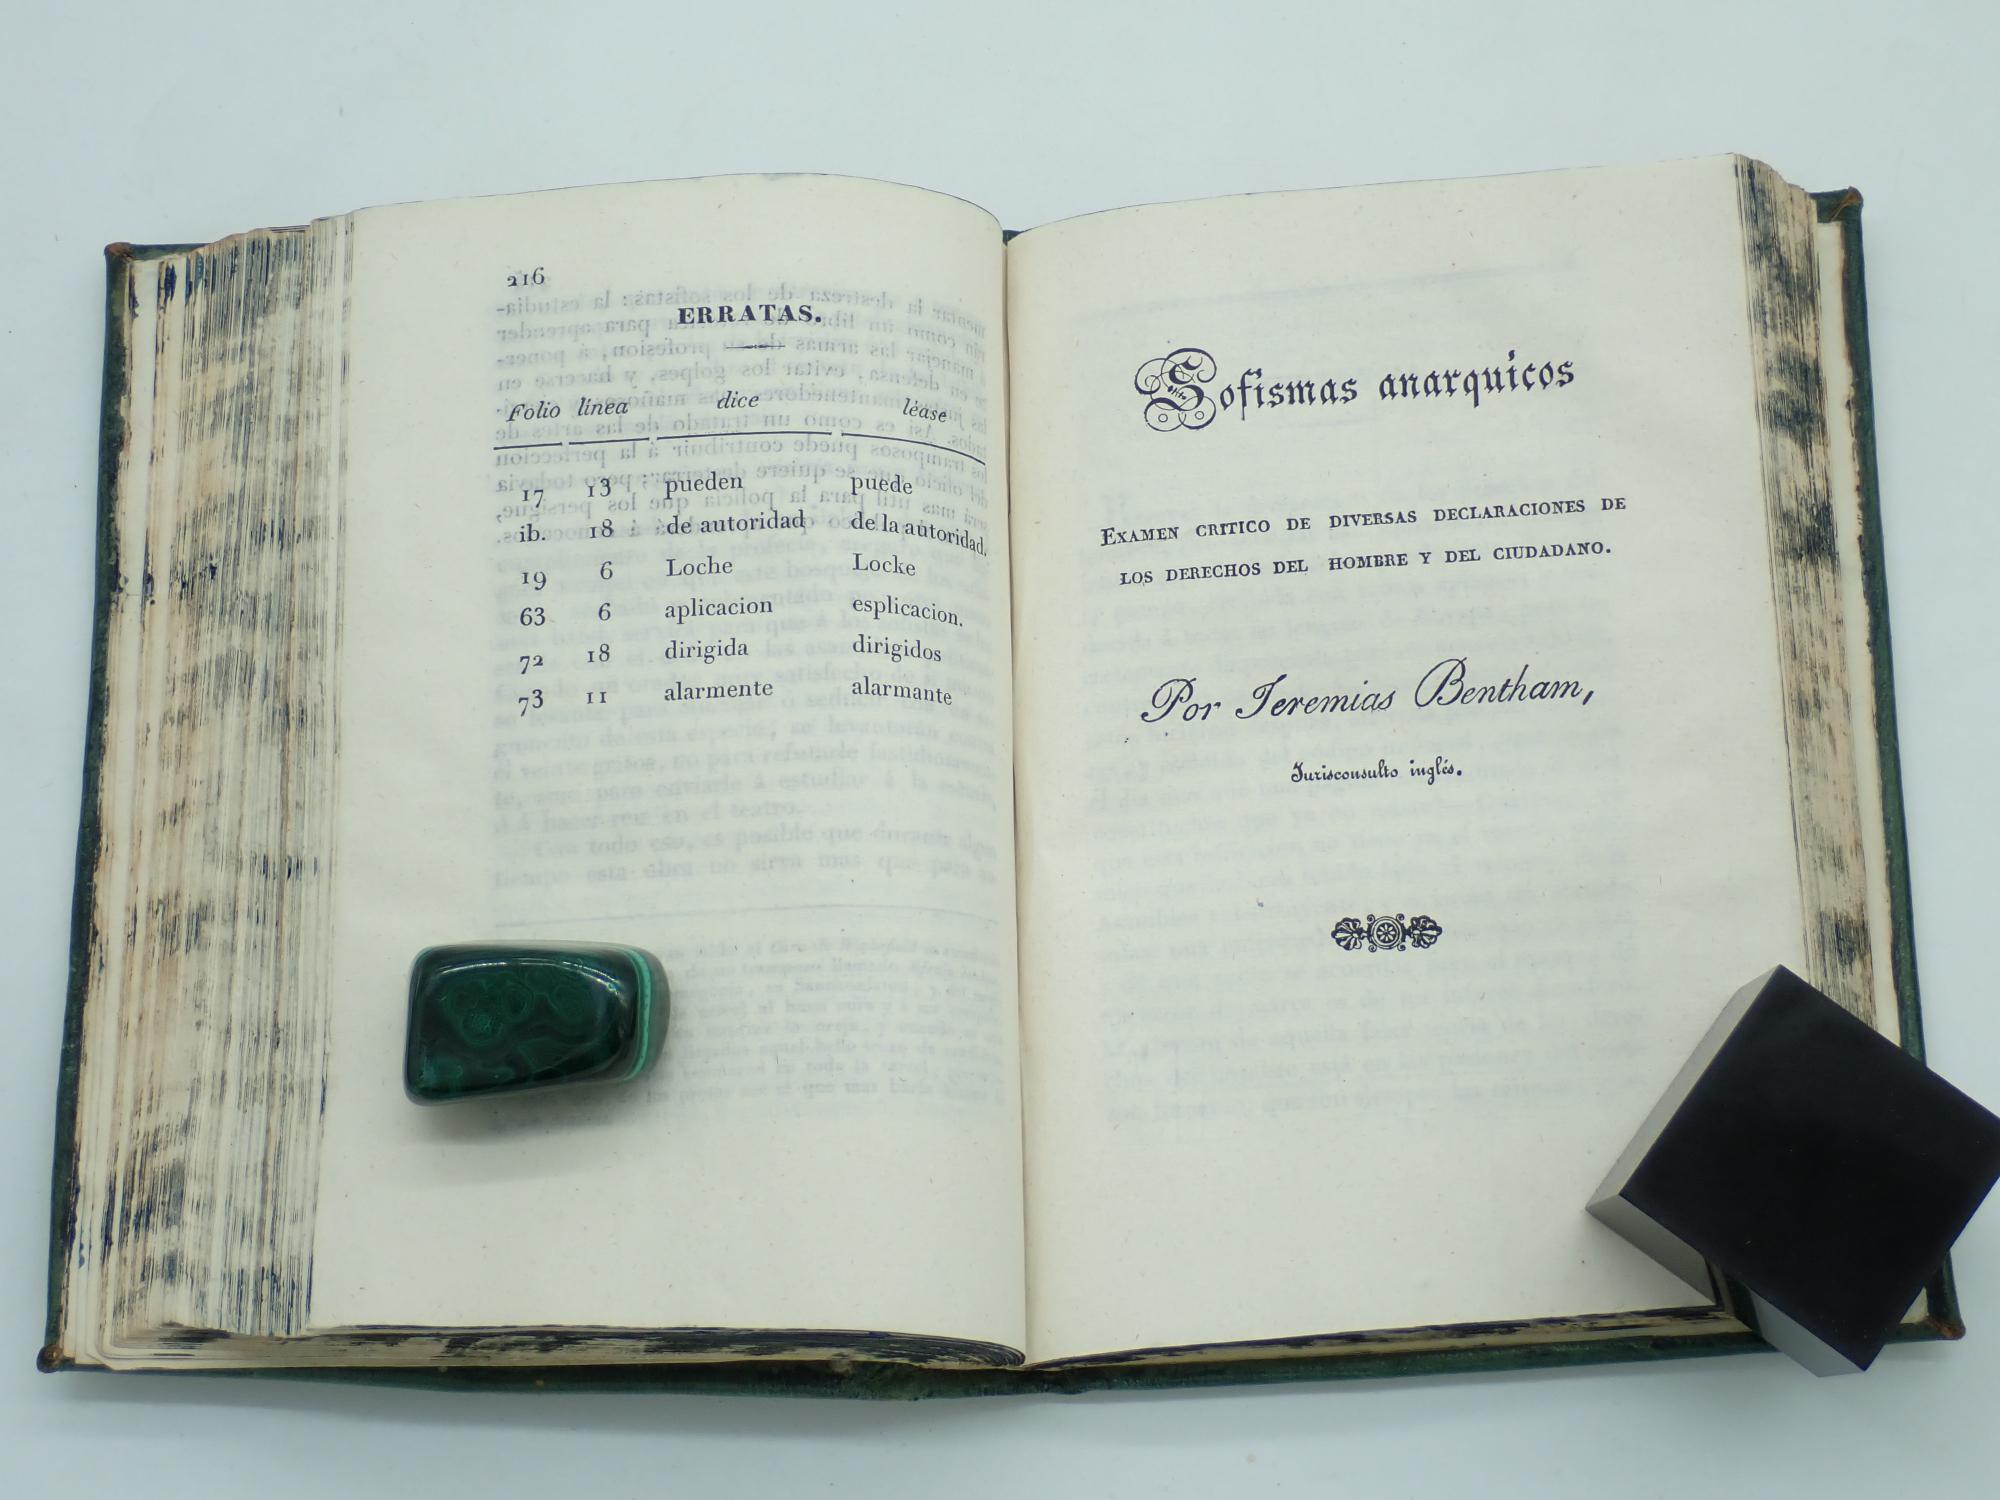 216
ERRATAS.
Folio línea dice léase
17 13 pueden puede
ib. 18 de autoridad de la autoridad.
19 6 Loche Locke
63 6 aplicacion esplicacion.
72 18 dirigida dirigidos
73 11 alarmente alarmante
Sofismas anarquicos
EXAMEN CRITICO DE DIVERSAS DECLARACIONES DE
LOS DERECHOS DEL HOMBRE Y DEL CIUDADANO.
Por Jeremias Bentham,
Jurisconsulto inglés.